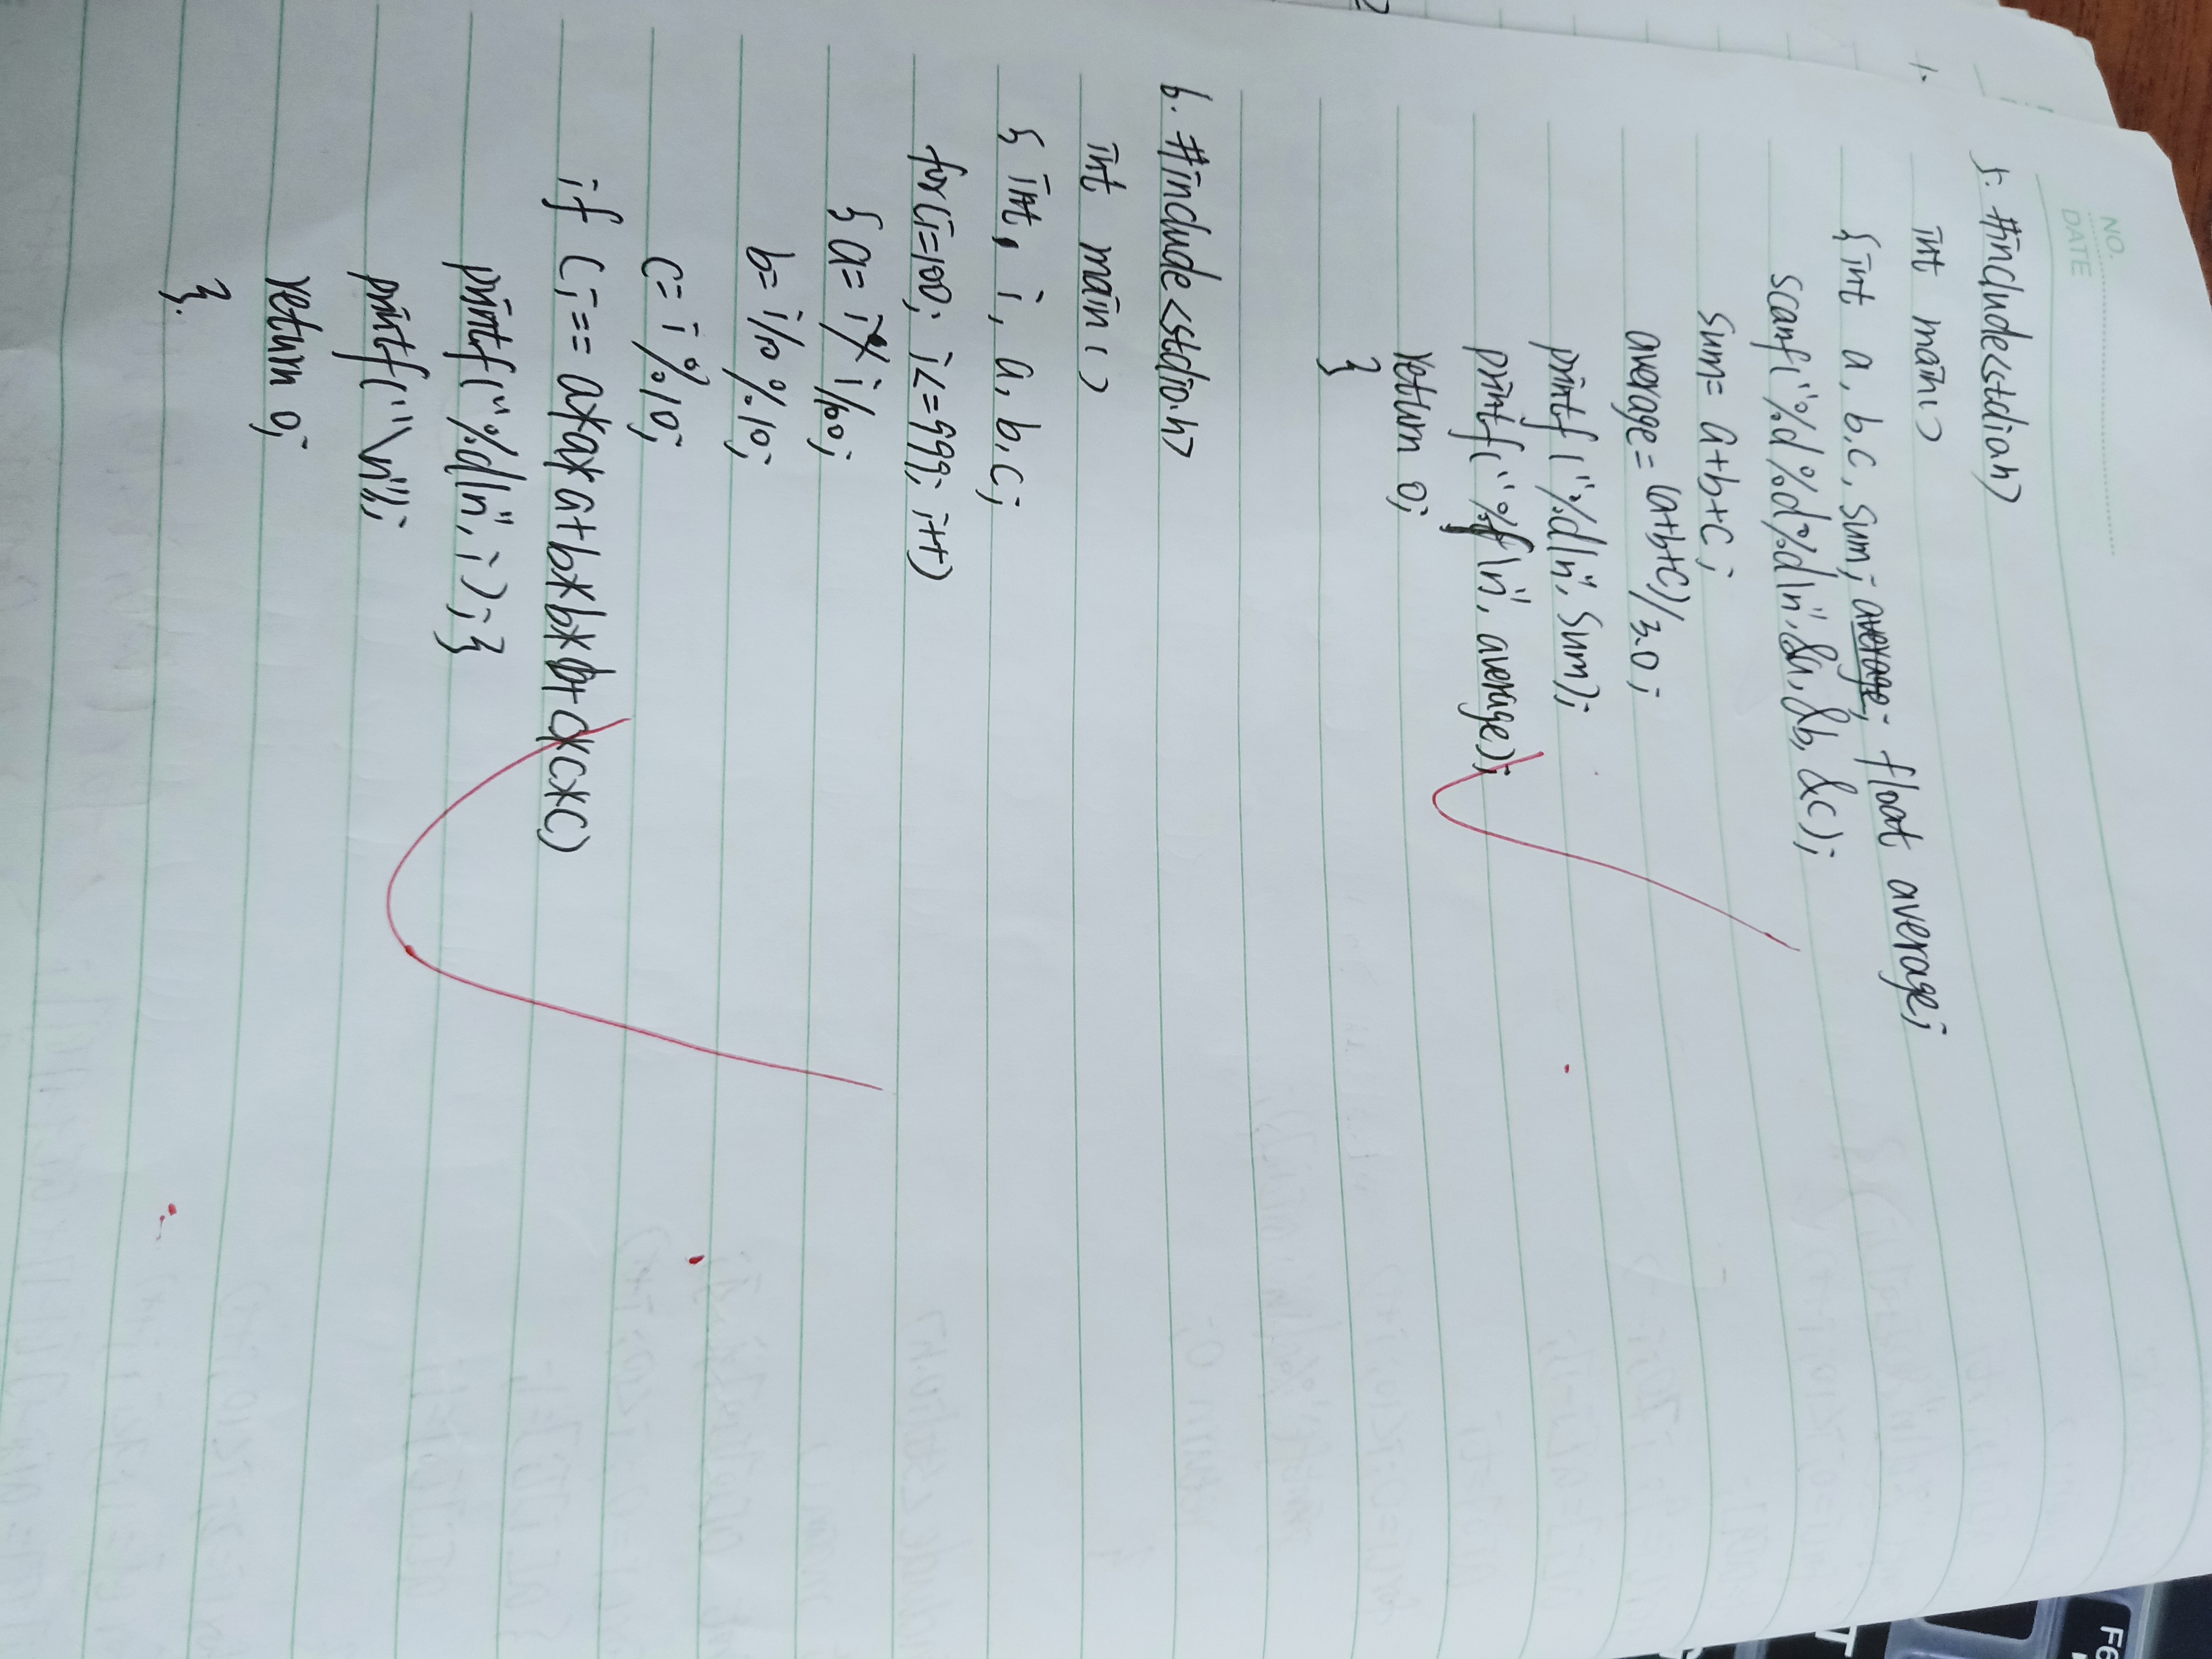 NO.
DATE
5. #include<stdioh>
int main()
{int a, b, c, sum; average; float average;
scanf("%d%d%d\n",&a,&b,&c);
sum=a+b+c;
average=(a+b+c)/3.0;
printf("%d\n",sum);
printf("%f\n",average);
return 0;
}
6. #include<stdio.h>
int main()
{ int, i, a, b, c;
for(i=100; i<=999; i++)
{a= i/100;
b= i/10%10;
c= i%10;
if (i==a*a*a+b*b*b+c*c*c)
printf("%d\n",i);}
printf("\n");
return 0;
}.
F6